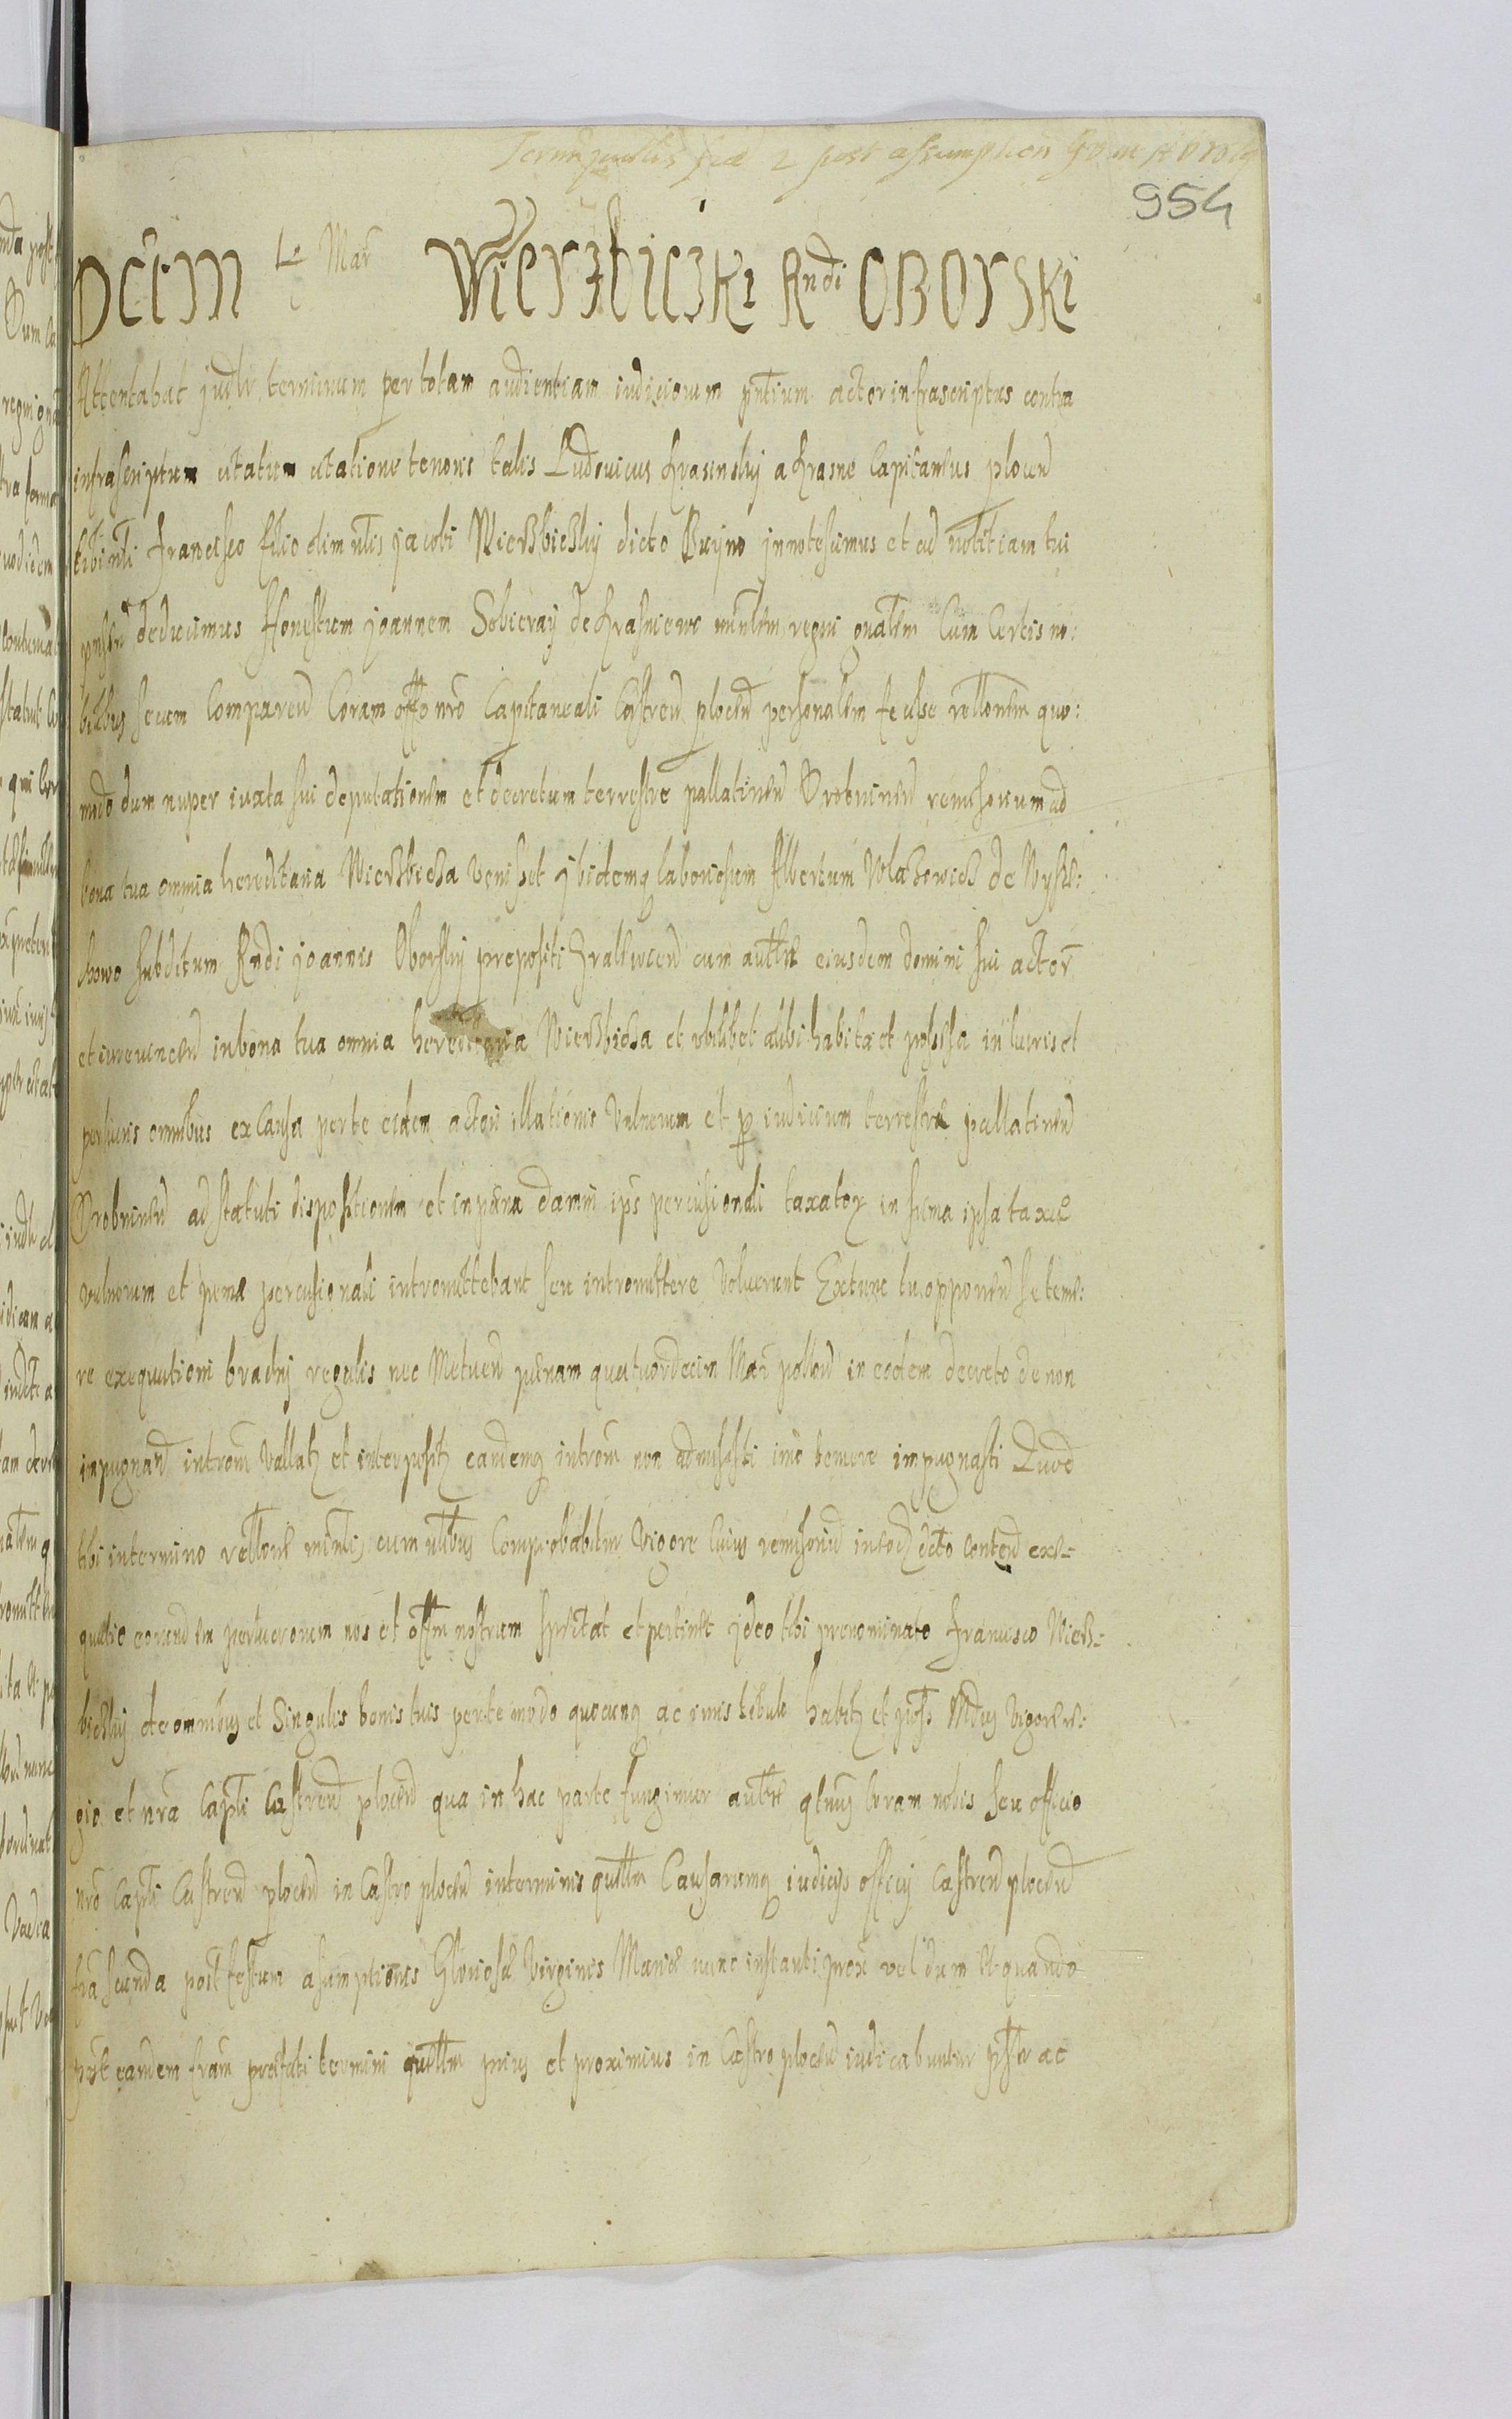 Termi quellis fia 2 post assumption
954
Dctm Le Mar Wierzbiczki Rndi Oborski
Attentabat judlr terminum per totam audientiam iudiciorum pntium actor infrascriptus contra
infrascriptum citatum citatione tenoris talis Ludovicus Krasinskÿ a Krasne Capitaneus plocen
tibi nli Francisco filio olim nlis jacobi Wierzbiczkÿ dicto Buÿno jnnotescimus et ad notitiam tui
deducimus Honestum joannem Sobieraÿ de Krasniewo mnlem regni gnalem Cum Certis no:
bilibus secum Comparen Coram offo nro Capitaneali Castren plocen personalem fecisse rellonem quo:
modo dum nuper iuxta sui deputationem et decretum terrestre pallatinen Drobninen remissorium ad
bona tua omnia hereditaria Wierzbicza venisset jbidemq laboriosum Albertum Wlazewicz de Nysze:
kowo subditum Rndi joannis Oborskÿ prepositi cum authte eiusdem domini sui actor
et iurevincen in bona tua omnia hereditaria Wierzbicza et ubilibet alibi habita et possessa in lucris et
perlucris omnibus ex causa per te eidem actori illationis vulnerum et p iudicium terrestre pallatinen
Drobninen ad statuti dispositionem et in pœna damni ips percussionali taxatoz in suma ipsa taxæ
vulnerum et penæ percussionali intromittebant seu intromittere voluerunt Extunc tu opponen se teme:
re exequutioni brachÿ regalis nec Metuen pœnam quatuordecim Mar pollon in eodem decreto de non
impugnan introm vallatz et interpositz eandemq introm non admisisti imo temere impugnasti Quod
tibi in termino rellone mnli, cum nlibus Comprobabitur vigore Cuius remissorid in eodz dcto conten exe=
qutio eorundem perlucrorum nos et offm nostrum spectat et pertinet jdeo tibi prenominato Francisco Wierz=
biczkÿ de omnibus et Singulis bonis tuis per te modo quocunq ac iuris titulo habitz et poss Mdus vigore re:
gio et nra Capli Castren plocen qua in hac parte fungimur authte qtnus coram nobis seu officio
nro Capli Castren plocen in Castro plocen in terminis qurllm Causarumq iudicÿs officÿ Castren plocen
fria secunda post festum assumptionis Gloriosæ Virginis Mariæ nunc instanti prox vel dum et quando
post eandem friam prefati termini qurllm prius et proximius in Castro plocen iudicabuntur pslr ac